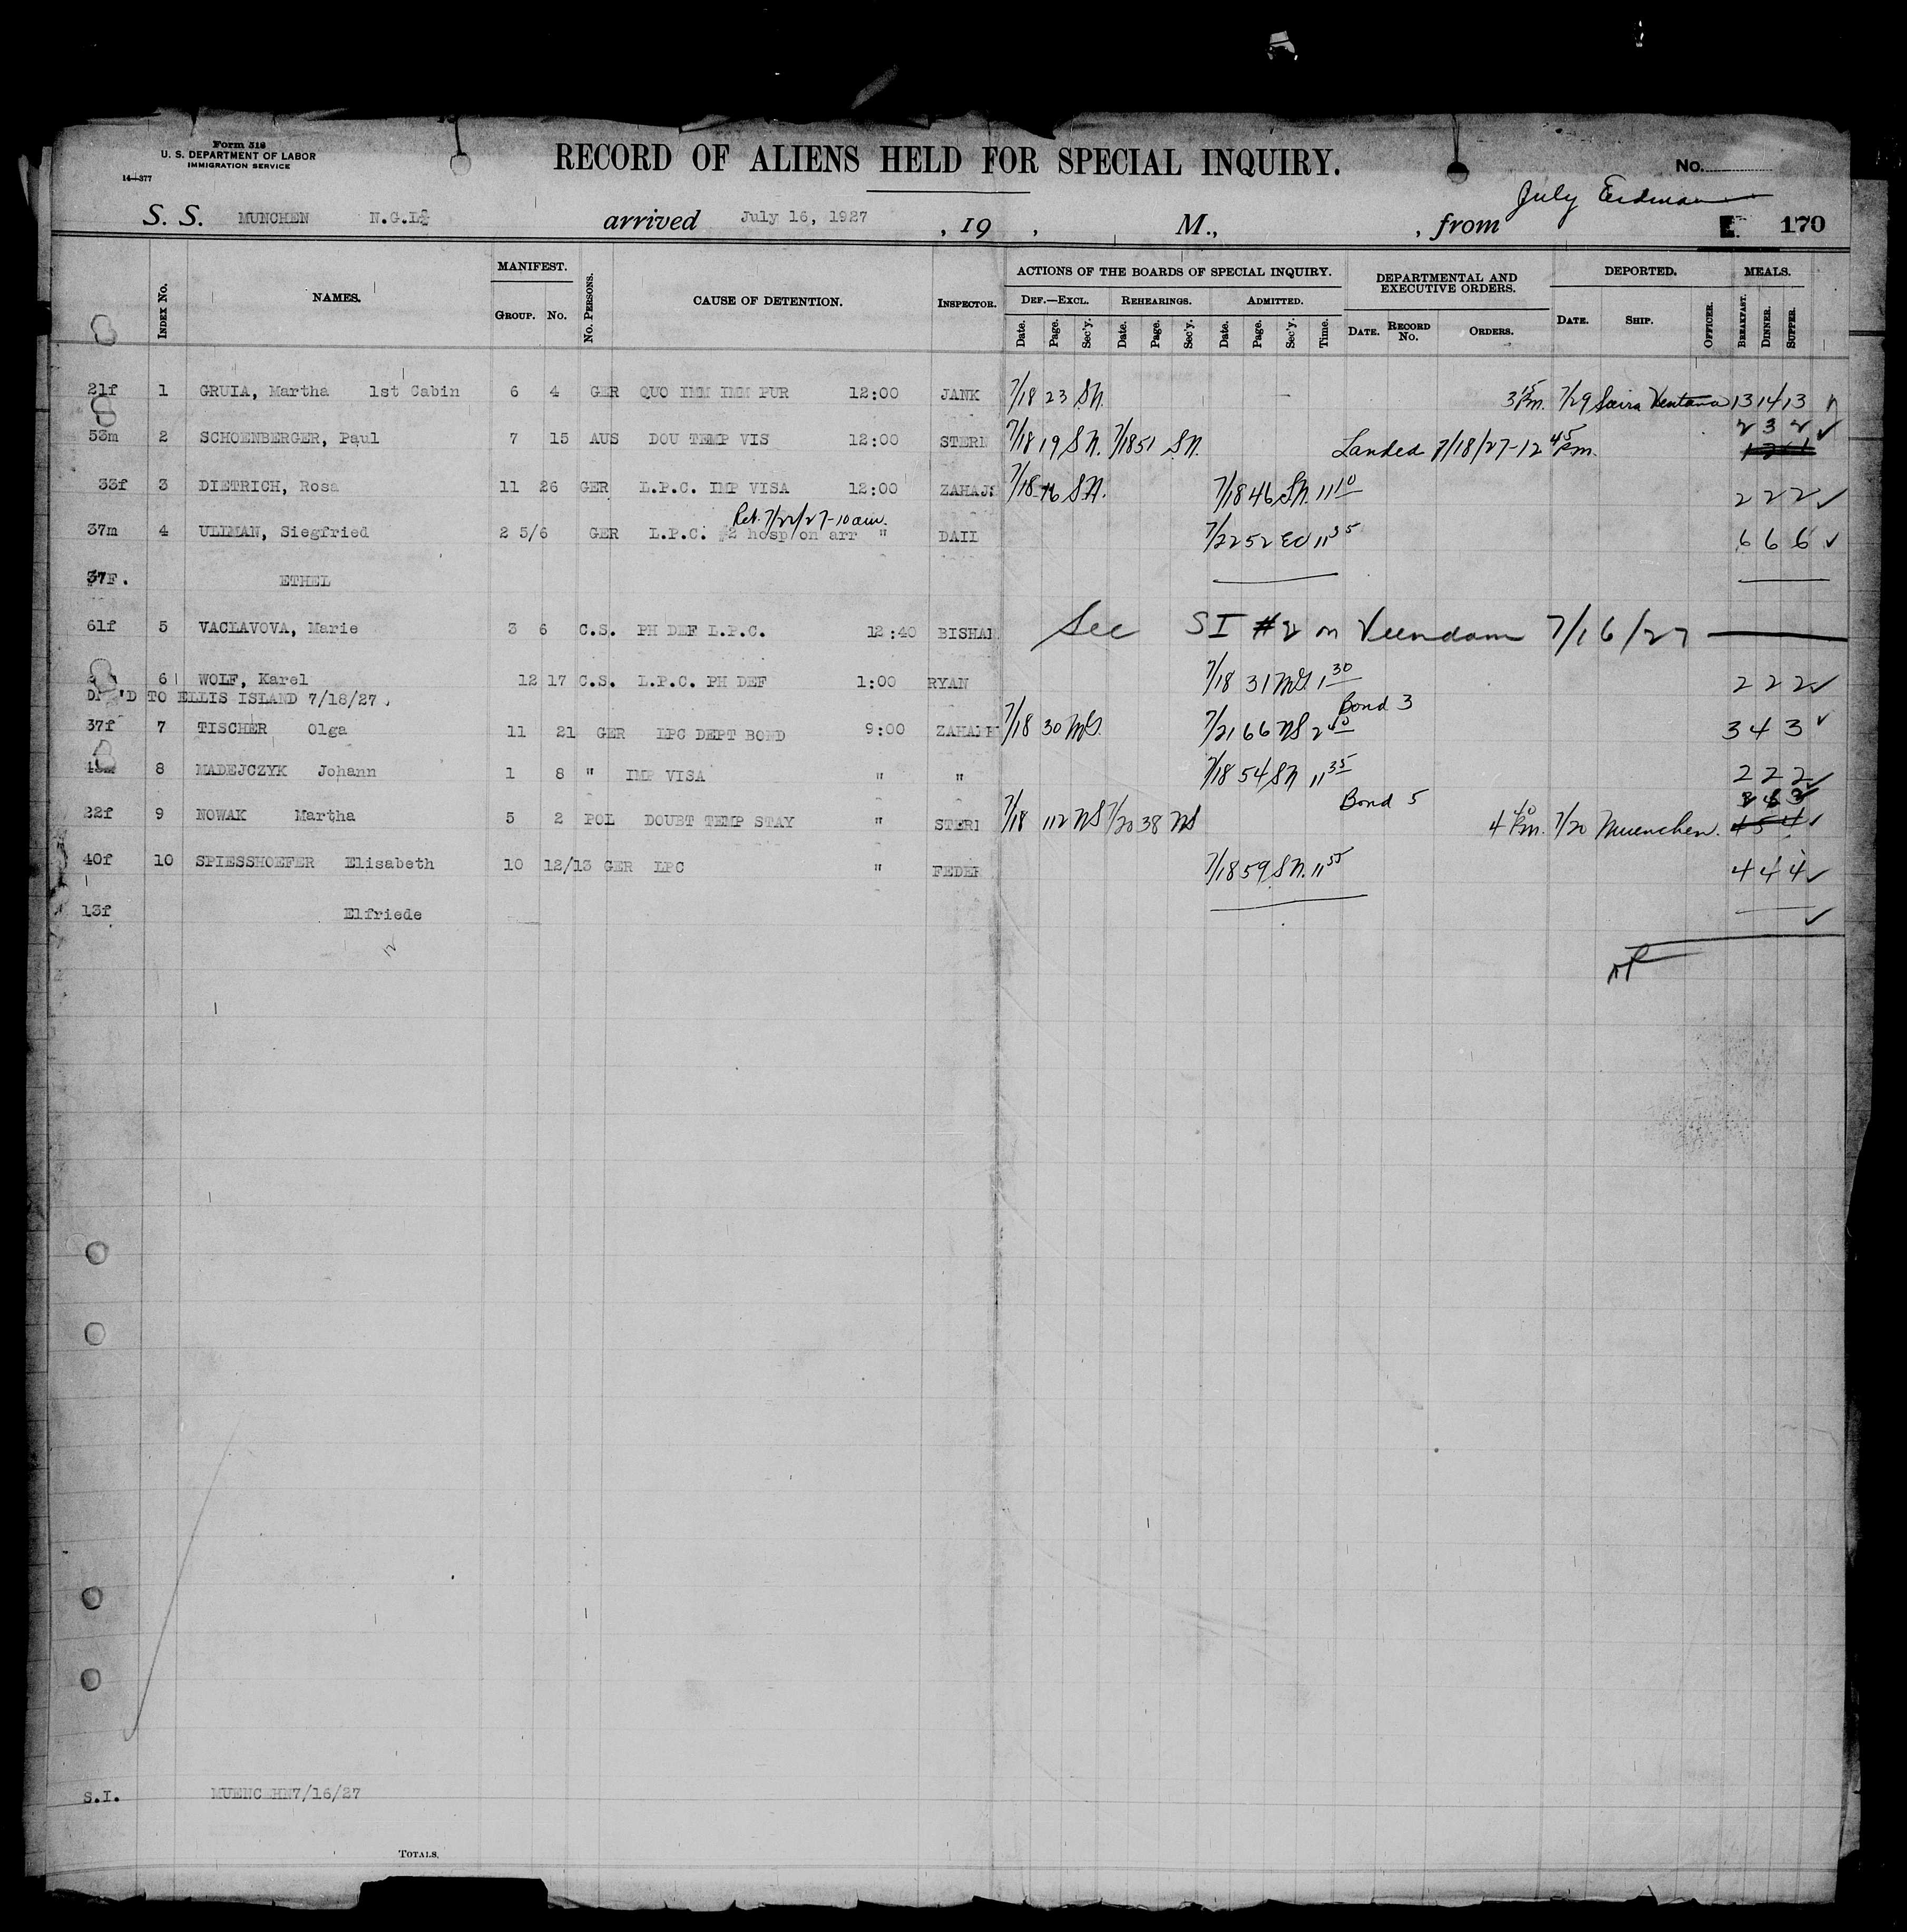 Form 318
U. S. DEPARTMENT OF LABOR
IMMIGRATION SERVICE
14—377
RECORD OF ALIENS HELD FOR SPECIAL INQUIRY.
No.
July Erdman
S. S. MUNCHEN N.G.L. arrived July 16, 1927, 19 , M., , from E. 170
Index No. NAMES. MANIFEST. Group. No. No. Persons. CAUSE OF DETENTION. Inspector. ACTIONS OF THE BOARDS OF SPECIAL INQUIRY. Def.—Excl. Date. Page. Sec'y. Rehearings. Date. Page. Sec'y. Admitted. Date. Page. Sec'y. Time. DEPARTMENTAL AND EXECUTIVE ORDERS. Date. Record No. Orders. DEPORTED. Date. Ship. Officer. MEALS. Breakfast. Dinner. Supper.
21f 1 GRUIA, Martha 1st Cabin 6 4 GER QUO IMM IMM PUR 12:00 JANK 7/18 23 SN. 3 15 Pm. 7/29 Ventana 13 14 13
53m 2 SCHOENBERGER, Paul 7 15 AUS DOU TEMP VIS 12:00 STERN 7/18 19 SN. 7/18 51 SN. Landed 7/18/27-12 45 Pm. 2 3 2 ✓
33f 3 DIETRICH, Rosa 11 26 GER L.P.C. IMP VISA 12:00 ZAHAJS 7/18 16 SN. 7/18 46 SN. 11 10 2 2 2 ✓
Ret. 7/22/27-10 am.
37m 4 ULLMAN, Siegfried 2 5/6 GER L.P.C. #2 hosp on arr " DAIL 7/22 52 EC 11 35 6 6 6 ✓
37F. ETHEL
61f 5 VACLAVOVA, Marie 3 6 C.S. PH DEF L.P.C. 12:40 BISHAR See SI #2 on Veendam 7/16/27
6 WOLF, Karel 12 17 C.S. L.P.C. PH DEF 1:00 RYAN 7/18 31 MG. 1 30 2 2 2 ✓
'D TO ELLIS ISLAND 7/18/27.
Bond 3
37f 7 TISCHER Olga 11 21 GER LPC DEPT BOND 9:00 7/18 30 MG. 7/21 66 NS 2 40 3 4 3 ✓
8 MADEJCZYK Johann 1 8 " IMP VISA " " 7/18 54 SN 11 35 2 2 2 ✓
Bond 5
22f 9 NOWAK Martha 5 2 POL DOUBT TEMP STAY " STERN 7/18 112 NS 7/20 38 NS 4 40 Pm. 7/20 Muenchen. 4 5 4 ✓
40f 10 SPIESSHOEFER Elisabeth 10 12/13 GER LPC " FEDER 7/18 59 SN. 11 55 4 4 4 ✓
13f Elfriede ✓
S.I. MUENCEHN7/16/27
Totals.